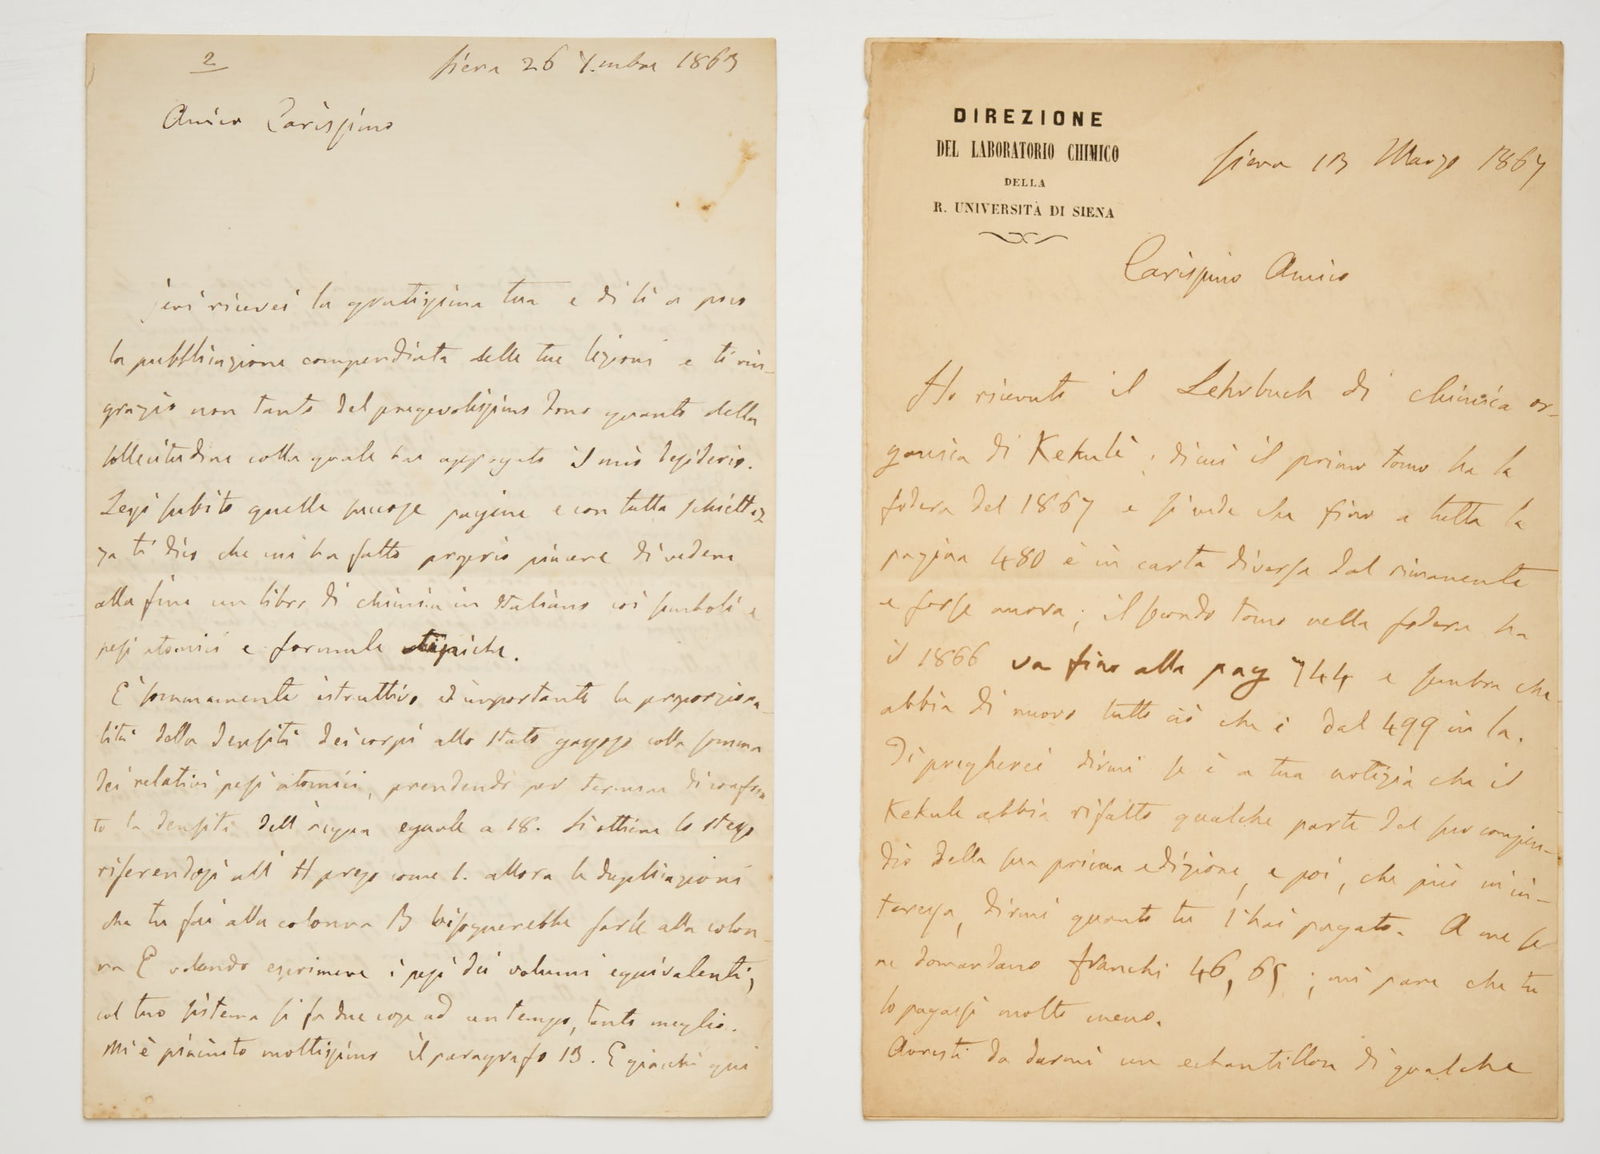 2
Siena 26 Xmbre 1863
Amico Carissimo
Jeri ricevei la gratissima tua e di lì a poco
la pubblicazione compendiata delle tue lezioni e ti rin-
grazio non tanto del pregevolissimo dono quanto della
sollecitudine colla quale hai appagato il mio desiderio.
Lessi subito quelle pagine e con tutta schiettez
za ti dico che mi ha fatto proprio piacere di vedere
alla fine un libro di chimica in Italiano coi simboli e
pesi atomici e formule tipiche.
È sommamente istruttivo ed importante la proporziona-
lità della densità dei corpi allo stato gassoso colla somma
dei relativi pesi atomici, prendendo per termine di confron
to la densità dell'acqua eguale a 18. Si ottiene lo stesso
riferendosi all'H preso come 1. allora la duplicazione
che tu fai alla colonna B bisognerebbe farla alla colon-
na E volendo esprimere i pesi dei volumi equivalenti;
col tuo sistema si fa due cose ad un tempo, tanto meglio.
Mi è piaciuto moltissimo il paragrafo 13. E giacchè qui
DIREZIONE
DEL LABORATORIO CHIMICO
DELLA
R. UNIVERSITÀ DI SIENA
Siena 13 Marzo 1867
Carissimo Amico
Ho ricevuto il Lehrbuch di chimica or-
ganica di Kekulè; dimi il primo tomo ha la
fodera del 1867 e si vede che fino a tutta la
pagina 480 è in carta diversa dal rimanente
e forse nuova; il secondo tomo nella fodera ha
il 1866 va fino alla pag 744 e sembra che
abbia di nuovo tutto ciò che è dal 499 in la.
Ti pregherei dirmi se è a tua notizia che il
Kekulè abbia rifatto qualche parte del suo compen-
dio della sua prima edizione, e poi, che più m'in-
teressa, dirmi quanto tu l'hai pagato. A me se
ne domandano franchi 46,65; mi pare che tu
lo pagassi molto meno.
Avresti da darmi un echantillon di qualche